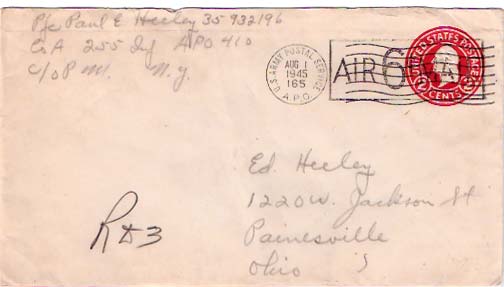 Pfc Paul E Heeley 35 932196
Co A 255 Inf APO 410
C/O P.M. N.Y.
U.S. ARMY POSTAL SERVICE
AUG 1
1945
165
A.P.O.
AIR 6
UNITED STATES POSTAGE
2 CENTS 2
Ed. Heeley
1220 W. Jackson St
Painesville
Ohio
R D 3